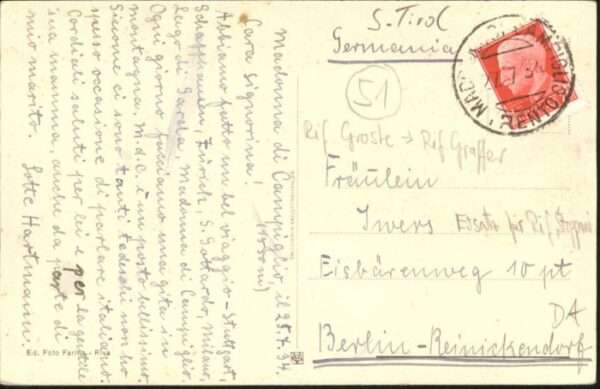 Madonna di Campiglio, il 25.7.34.
(1550 m)
Cara Signorina!
Abbiamo fatto un bel viaggio - Stuttgart,
Schaffhausen, Zürich, S. Gottardo, Milano,
Lago di Garda, Madonna di Campiglio.
Ogni giorno facciamo una gita in
montagna. M.d.C. è un posto bellissimo.
Siccome ci sono tanti tedeschi non ho
spesso occasione di parlare italiano.
Cordiali saluti per lei e per la gentile
sua mamma, anche da parte di
mio marito. Lotte Hartmann.
Ed. Foto Farina - Riva
S. Tirol
Germania
51
Rif Groste → Rif Graffer
Fräulein
Iwers
Eisbärenweg 10 pt
DA
Berlin-Reinickendorf